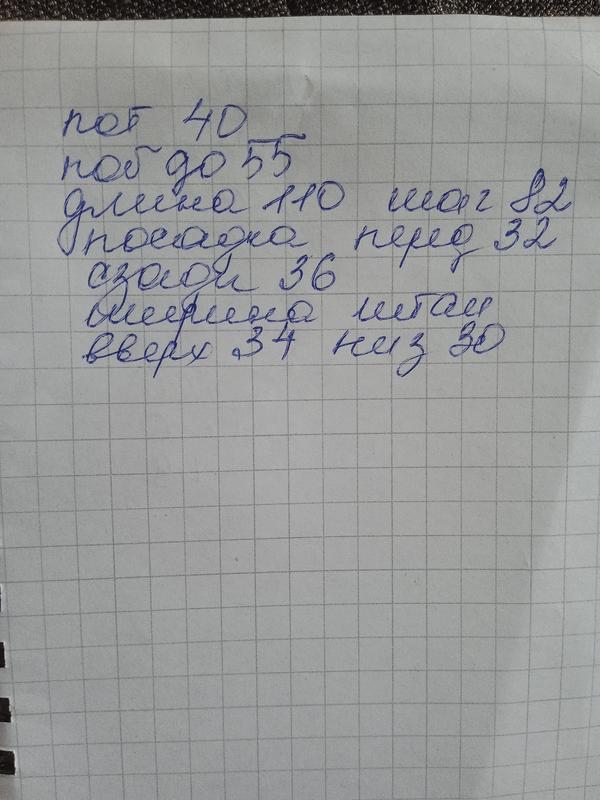 пот 40
поб до 55
длина 110 шаг 82
посадка перед 32
сзади 36
ширина штан
вверх 34 низ 30